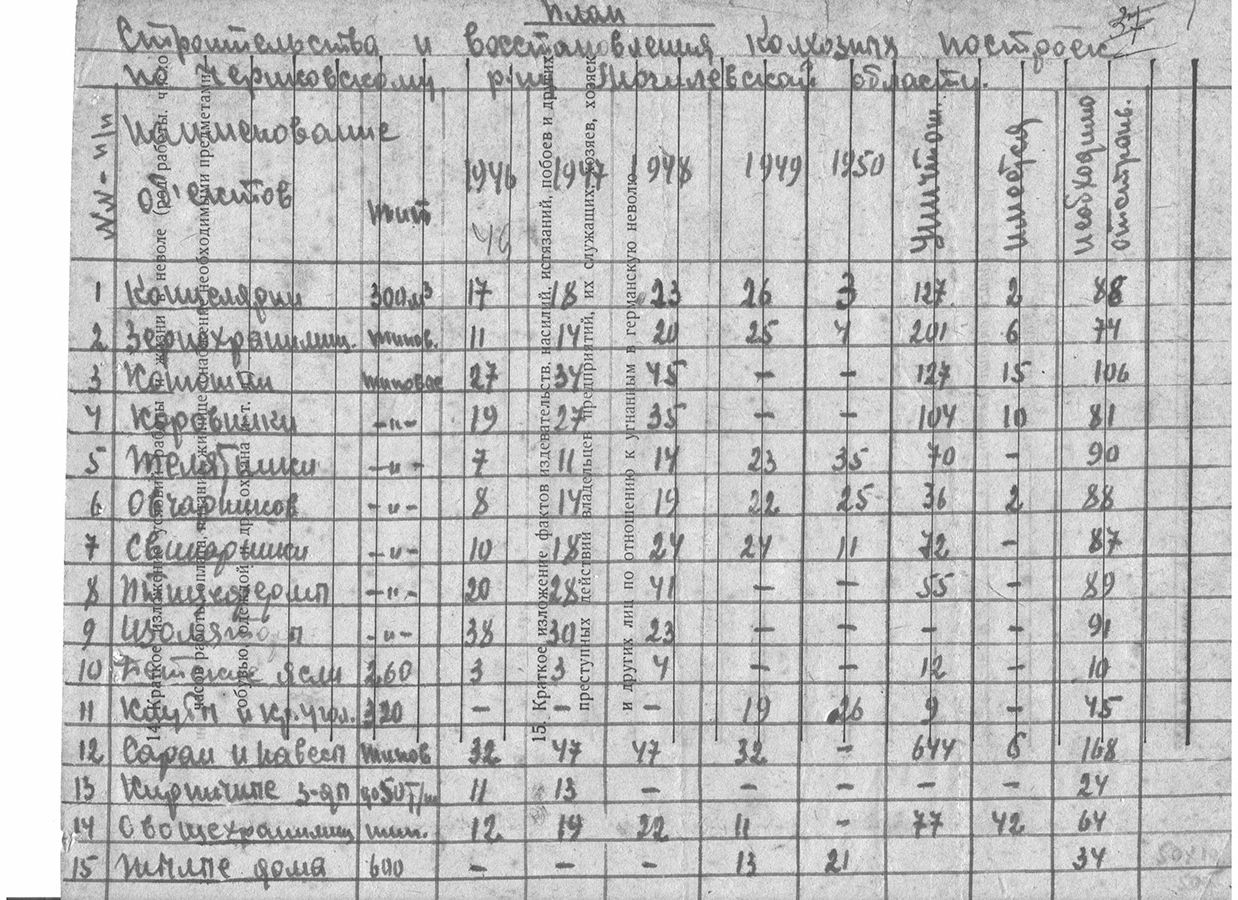 План
37
Строительства и восстановления колхозных построек
по Чериковскому р-ну Могилевской области.
NN п/п Наименование об'ектов тип 1946 1947 1948 1949 1950 Уничтож. Имеется Необходимо отстраив.
46
1 Канцелярии 300м³ 17 18 23 26 3 127 2 88
2 Зернохранилищ. типов. 11 14 20 25 4 201 6 74
3 Конюшни типовые 27 34 45 – – 127 15 106
4 Коровники -"- 19 27 35 – – 104 10 81
5 Телятники -"- 7 11 14 23 35 70 - 90
6 Овчарников -"- 8 14 19 22 25 36 2 88
7 Свинарники -"- 10 18 24 24 11 72 - 87
8 Птицефермы -"- 20 28 41 – – 55 – 89
9 -"- 38 30 23 – – – – 91
10 Детские ясли 260 3 3 4 – – 12 – 10
11 Клубы и кр. угол. 320 – – – 19 26 9 – 45
12 Сараи и навесы типов 32 47 47 32 – 644 6 168
13 Кирпичные з-ды до 50т/ш 11 13 – – – – – 24
14 Овощехранилищ тип. 12 19 22 11 – 77 42 64
15 Жилые дома 600 – – – 13 21 34
14. Краткое изложение условий работы и жизни в неволе (род работы, число
часов работы, оплата, питание, жилище, снабжение необходимыми предметами,
обувью, одеждой и др., охрана и т.
15. Краткое изложение фактов издевательств, насилий, истязаний, побоев и других
преступных действий владельцев предприятий, их служащих, хозяев, хозяек
и других лиц по отношению к угнанным в германскую неволю